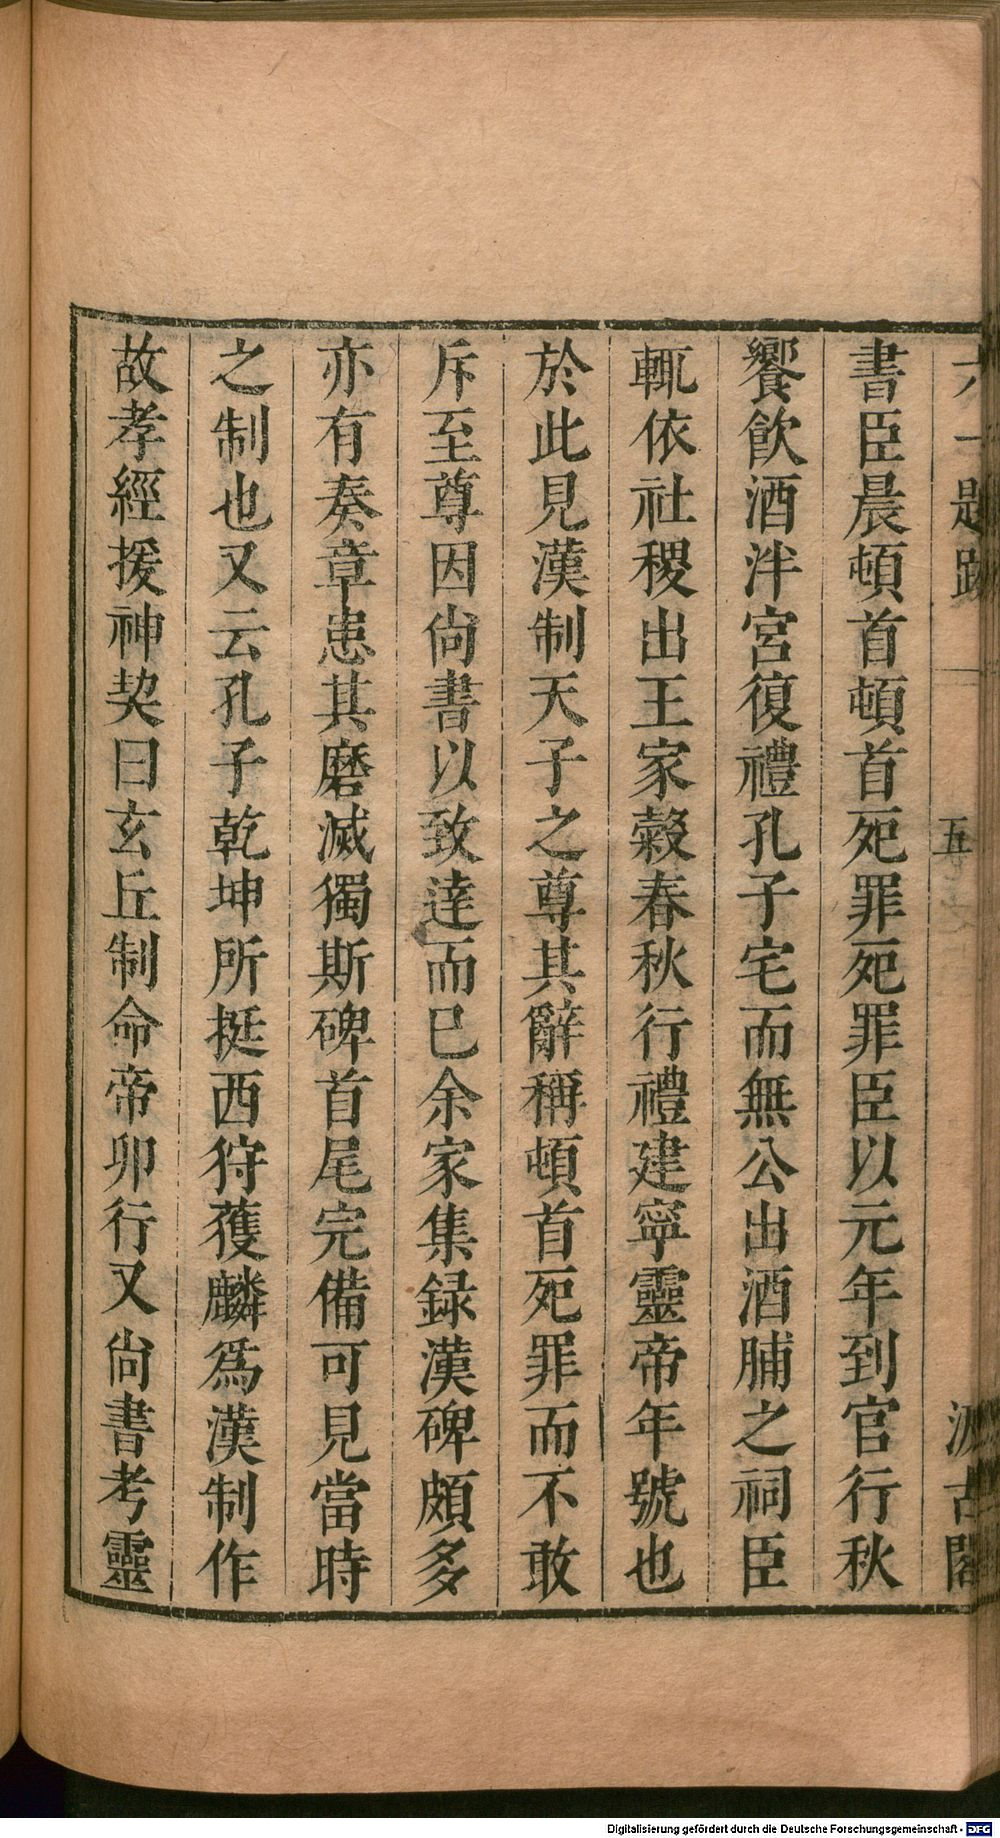 六一題跋 五 汲古閣
書臣晨頓首頓首死罪死罪臣以元年到官行秋
饗飲酒泮宮復禮孔子宅而無公出酒脯之祠臣
輒依社稷出王家穀春秋行禮建寧靈帝年號也
於此見漢制天子之尊其辭稱頓首死罪而不敢
斥至尊因尙書以致達而已余家集録漢碑頗多
亦有奏章患其磨滅獨斯碑首尾完備可見當時
之制也又云孔子乾坤所挺西狩獲麟爲漢制作
故孝經援神契曰玄丘制命帝卯行又尙書考靈
Digitalisierung gefördert durch die Deutsche Forschungsgemeinschaft - DFG